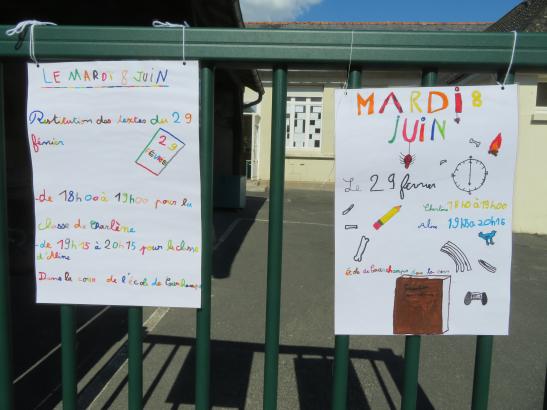 LE MARDI 8 JUIN
Restitution des textes du 29
février
29
FÉVRIER
-de 18h00 à 19h00 pour la
classe de Charlène
-de 19h15 à 20h15 pour la classe
d'Aline
Dans la cour de l'école de Courchamps
MARDI 8
JUIN
Le 29 février
Charlène 18h0 à 19h00
Aline 19h15 à 20h15
École de Courchamps dans la cour